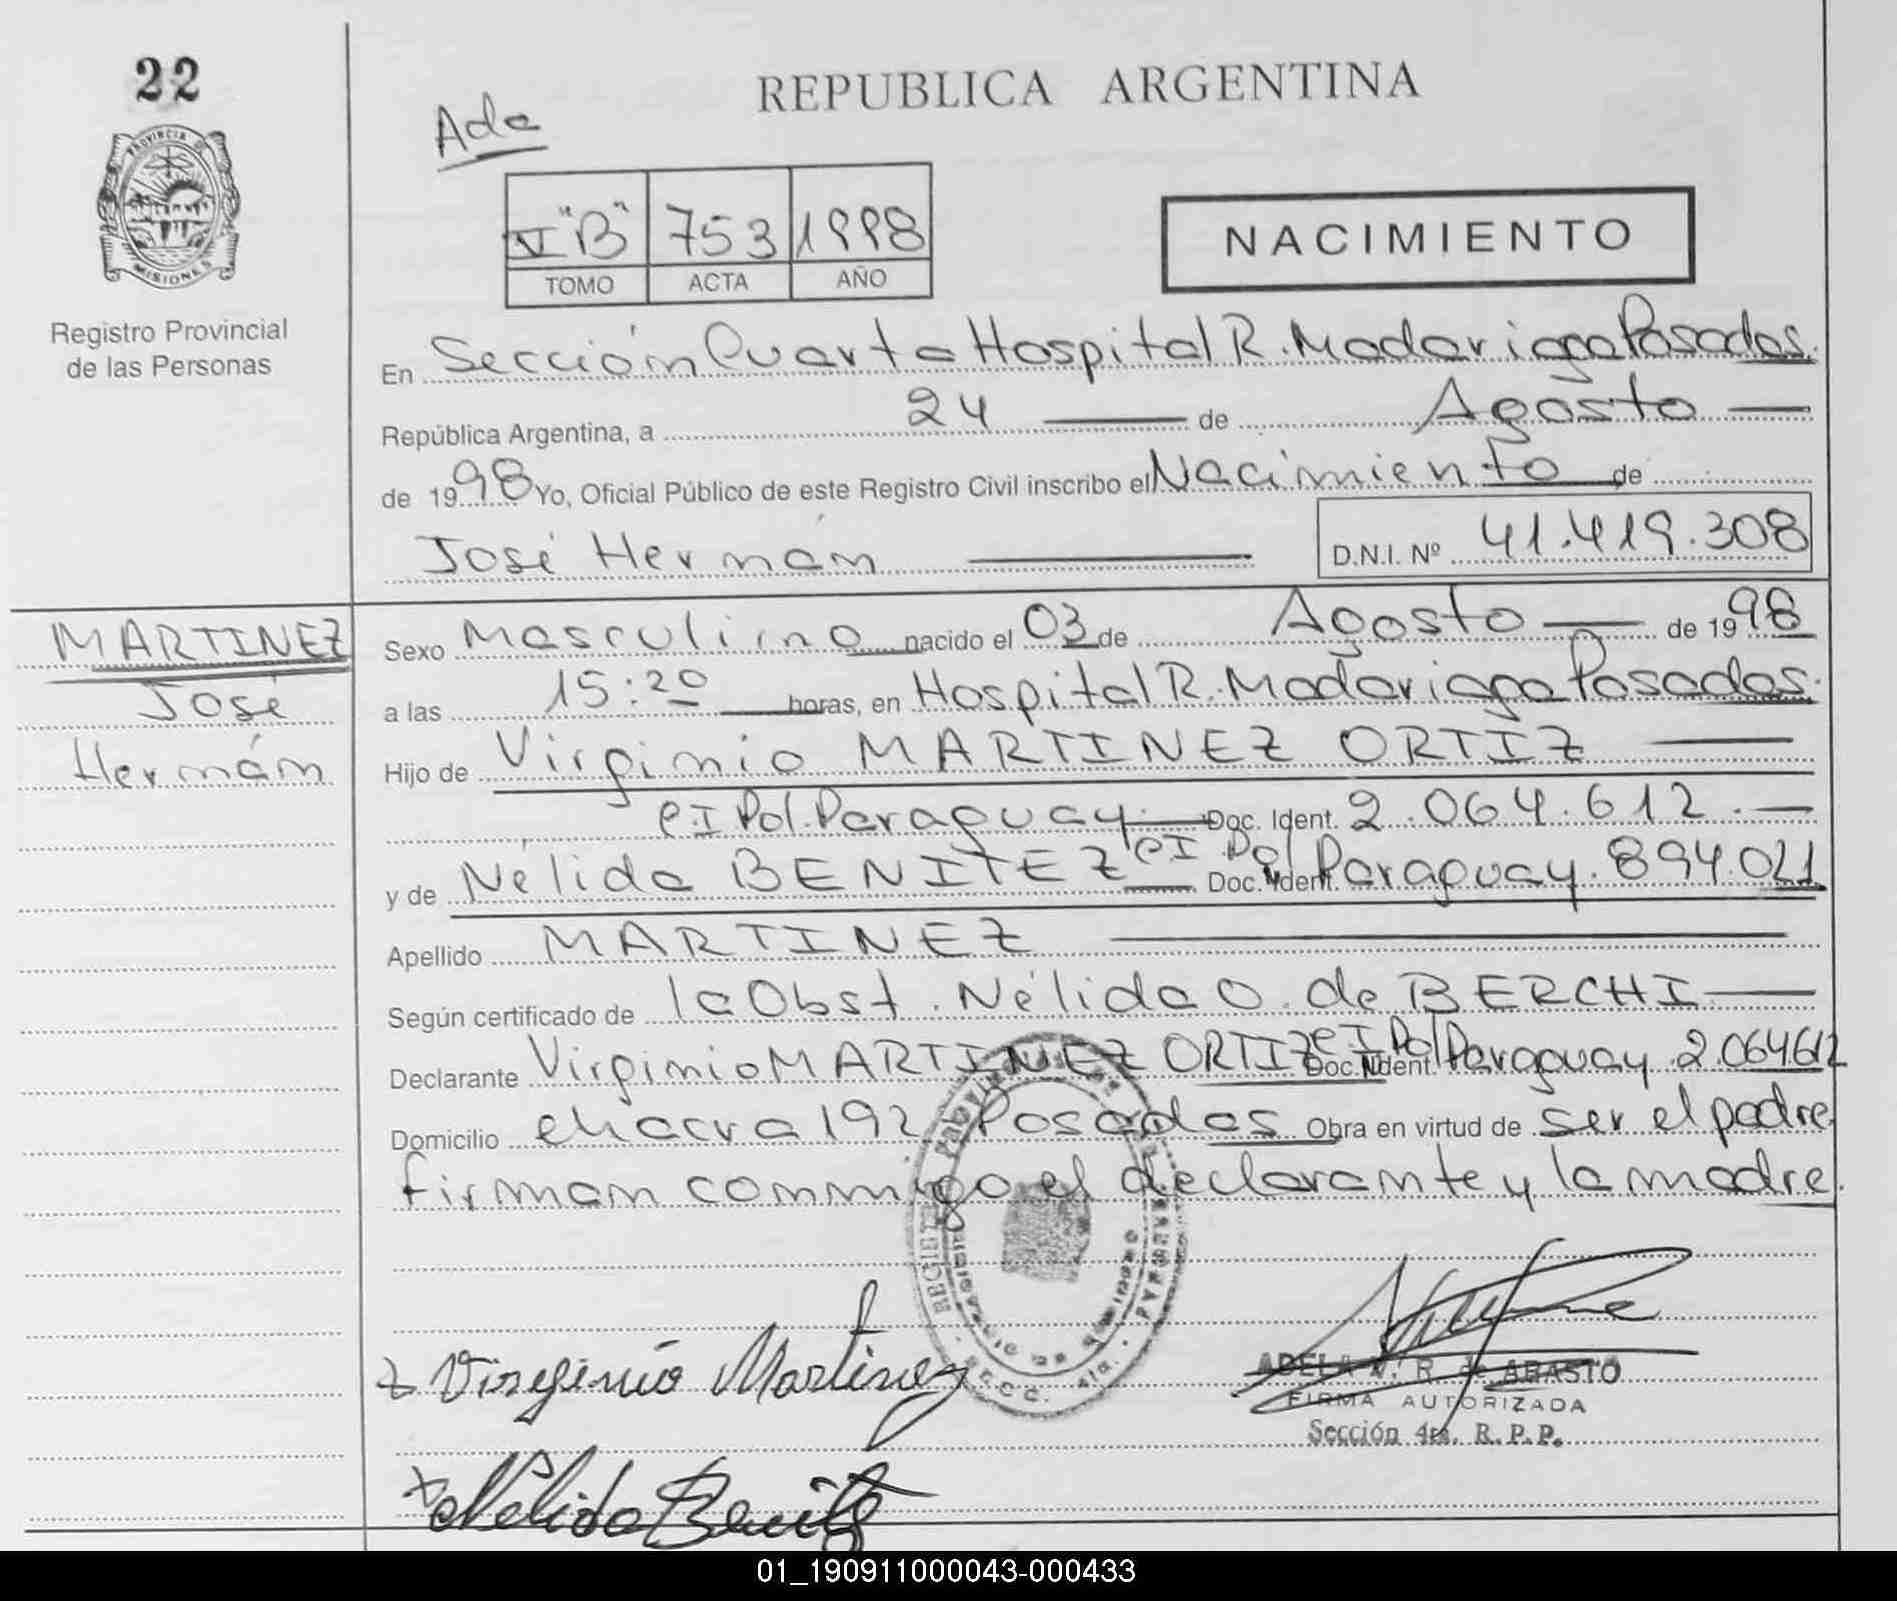 22
REPUBLICA ARGENTINA
Ada
PROVINCIA DE
MISIONES
V "B" 753 1998
TOMO ACTA AÑO
NACIMIENTO
Registro Provincial
de las Personas
En Sección Cuarta Hospital R. Madariaga Posadas.
República Argentina, a 24 de Agosto
de 1998 Yo, Oficial Público de este Registro Civil inscribo el Nacimiento de
José Hernán D.N.I. Nº 41.419.308
MARTINEZ
José
Hernán
Sexo Masculino nacido el 03 de Agosto de 1998
a las 15:20 horas, en Hospital R. Madariaga Posadas.
Hijo de Virginio MARTINEZ ORTIZ
CI Pol. Paraguay. Doc. Ident. 2.064.612.
y de Nélida BENITEZ CI Pol Doc. Ident. Paraguay. 894.021
Apellido MARTINEZ
Según certificado de la Obst. Nélida O. de BERCHI
Declarante Virginio MARTINEZ ORTIZ CI Pol Doc. Ident. Paraguay 2.064612
Domicilio chacra 192 Posadas Obra en virtud de ser el padre.
firman conmigo el declarante y la madre.
Virginio Martinez
ADELA N. R. de ABASTO
FIRMA AUTORIZADA
Sección 4ta. R. P. P.
Nélida Benitez
01_190911000043-000433